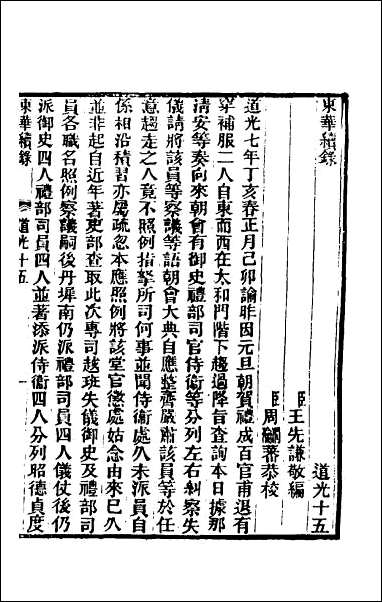 東華續錄　道光十五
臣王先謙敬編
臣周瀹蕃恭校
道光七年丁亥春正月己卯諭昨因元旦朝賀禮成百官甫退有
穿補服二人自東而西在太和門階下趨過降旨查詢本日據那
清安等奏向來朝會有御史禮部司官侍衞等分列左右糾察失
儀請將該員等察議等語朝會大典自應整齊嚴肅該員等於任
意趨走之人竟不照例指拏所司何事並聞侍衞處久未派員自
係相沿積習亦屬疏忽本應照例將該堂官懲處姑念由來已久
並非起自近年著吏部查取此次專司越班失儀御史及禮部司
員各職名照例察議嗣後丹墀南仍派禮部司員四人儀仗後仍
派御史四人禮部司員四人並著添派侍衞四人分列昭德貞度
東華續錄　道光十五　一